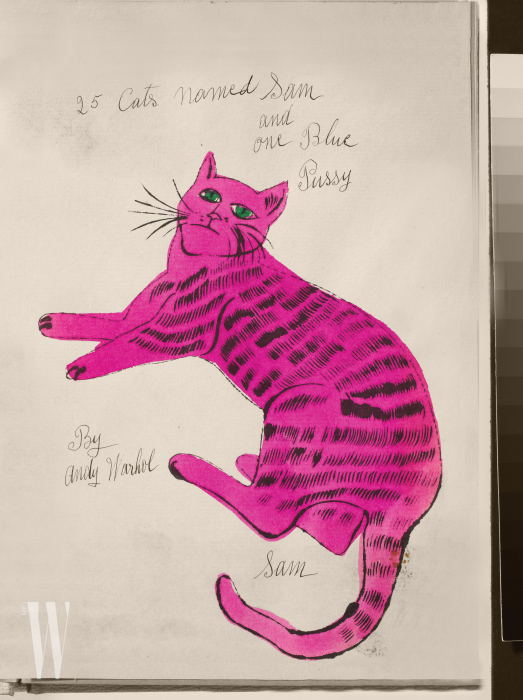 25 Cats named Sam
and
one Blue
Pussy
By
Andy Warhol
Sam
W